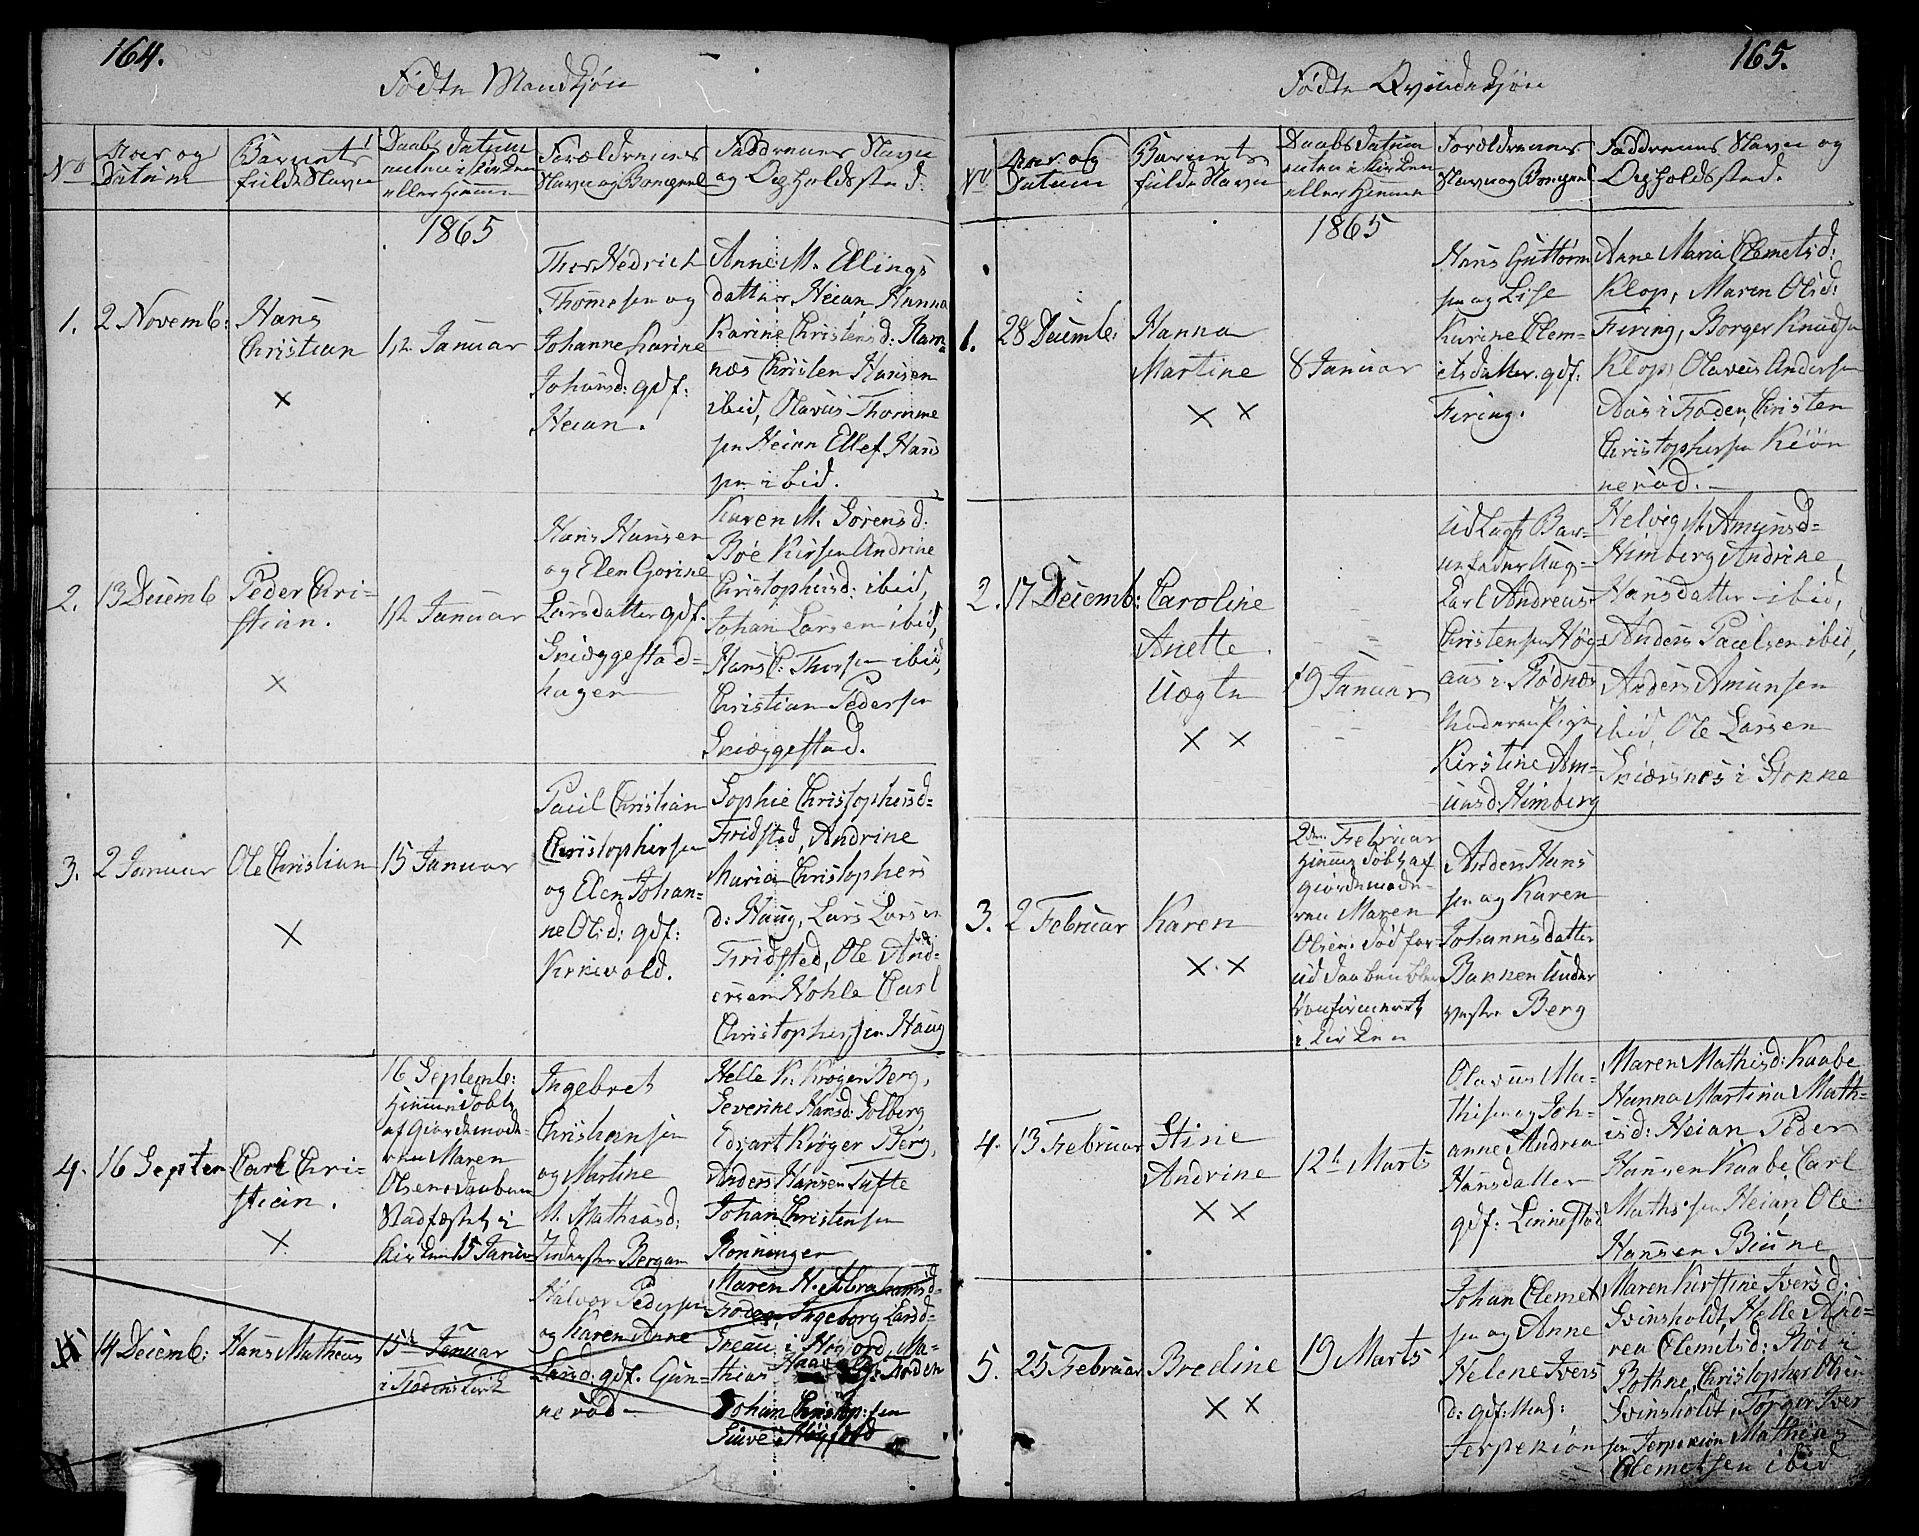 164.
Fødte Mandkjøn
No
Aar og
Datum
Barnets
fulde Navn
Daabs Datum
enten i Kirken
eller Hjemme
Forældrenes
Navn og Borgerl
Faddrenes Navn
og Opholdssted:
1865
1.
2 Novemb:
Hans
Christian
×
12 Januar
Thor Hedrich
Thommesen og
Johanne Karine
Johansd: gdf:
Heian.
Anne M. Ellings
datter Heian, Hanna
Karine Christensd:
næs Christen Hansen
ibid, Olavus Thomme
sen Heian Ellef Hans
sen ibid.
2.
13 Decemb
Peder Chri-
stian.
×
12 Januar
Hans Hansen
og Elen Gorine
Larsdatter gdf.
Skiæggestad-
hagen
Karen M. Sørensd.
Andrine
Christophersd: ibid,
Johan Larsen ibid,
Hans C. Thorsen ibid,
Christian Pedersen
Skiæggestad.
3.
2 Januar
Ole Christian
×
15 Januar
Paul Christian
Christophersen
og Elen Johan-
ne Olsd: gdf:
Kirkevold.
Sophie Christophersd-
Fridsted, Andrine
Maria Christophers
d: Haug, Lars Larsen
Fridsted, Ole And-
ersen Hohle Carl
Christophersen Haug
4.
16 Septem
Carl Chri-
stian.
×
16 Septemb:
Hjemmedøbt
af Giordemode-
ren Maren
Olsen Daaben
Stadfæstet i
Kirken 15 Januar
Ingebret
Christiansen
og Martine
M. Mathiasd:
Bergan
Helle K. Krøger Berg,
Severine Hansd: Solberg
Edvart Krøger Berg,
Anders Hansen Tufte
Johan Christensen
Rønningen
14 Decemb:
Hans Matheus
15de Januar
i Kirke
Halvor Pedersen
og Karen Anne
Larsd: gdf. Gun-
nerød
Maren H. Abrahamsd-
Foden, Ingeborg Larsd-
i Ma-
thias Foden
Johan Christop:sen

165.
Fødte Qvindekjøn
No
Aar og
Datum
Barnets
fulde Navn
Daabs Datum
enten i Kirken
eller Hjemme
Forældrenes
Navn og Borgerl
Faddrenes Navn og
Opholdssted.
1865
1.
28 Decemb:
Hanna
Martine
× ×
8 Januar
Hans Guttorm
sen og Lise
Karine Clem-
etsdatter gdf:
Firing.
Anne Maria Clemetsd:
Klop, Maren Olsd:
Firing, Borger Knudsen
Klop, Olaves Andersen
Aas i Foden, Christen
Christophersen Kiøn
nerød.
2.
17 Decemb:
Caroline
Anette.
Uægte
× ×
19 Januar
Udlagt Bar-
nefader Ung-
karl Andreas
Christensen Høg-
aas i Rødnæs
Moderen Pige
Kirstine Am-
unsd: Himberg
Helvig Amunsd-
Himberg Andrine
Hansdatter ibid,
Anders Paulsen ibid,
Anders Amunsen
ibid, Ole Larsen
Skiærsnes i Stokke
3.
2 Februar
Karen
× ×
2den Februar
Hjemmedøbt af
Giordemode-
ren Maren
Olsen. Død for-
ud Daaben blev
Konfirmeret
i Kirken
Anders Hans
sen og Karen
Johannsdatter
Bakken under
vestre Berg
4.
13 Februar
Stine
Andrine
× ×
12te Marts
Olavus Ma-
thisen og Joh-
anne Andrea
Hansdatter
gdf: Linnestad
Maren Mathisd: Kaabe
Hanna Martina Math-
isd: Heian Peder
Hansen Kaabe Carl
Mathisen Heian Ole
Hansen Biune
5.
25 Februar
Bredine
× ×
19 Marts
Johan Clemet
sen og Anne
Helene Ivers
d: gdf:
Jerpekiøn
Maren Kirstine Iversd.
Svinsholdt, Helle And-
rea Clemetsd: Rød i
Bothne, Christopher Olsen
Svinsholdt, Torger Iver
sen Jerpekiøn Mathias
Clemetsen ibid